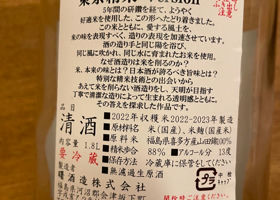 5年間の研鑽を経て、ようやく
好適米を使用した、この形へたどり着きました。
この米とともに、愛する風土を、
米の味を表現すべく、造りの表現を加速させています。
酒の造り手と同じ陽を浴び、
同じ風に吹かれ、同じ水に育まれたお米を使用。
なぜ酒造りは米を削るのか？
米、本来の味とは？日本酒が誇るべき旨味とは？
特別な精米技術との出合いから
あえて米を削らない酒造りをし、天明が目指す
丁寧で清潔な造りによって生まれる透明感とともに、
その答えを探求した作品です。
品目
清酒
内容量 1.8L
要冷蔵
製造者
■2022年収穫米2022-2023年製造
■原材料名 米(国産)、米麹(国産米)
■原料米 福島県喜多方産山田錦100%
■精米歩合 88% ■アルコール分 13度
■保存方法 冷蔵庫に保管して下さい。
■無濾過生原酒
曙酒造株式会社
福島県河沼郡会津坂下町